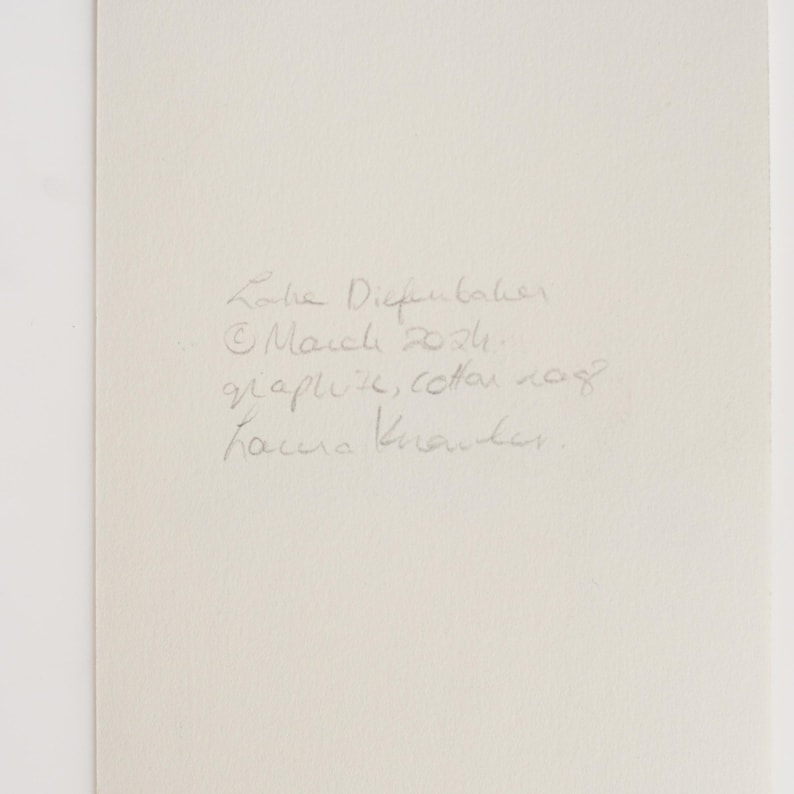 Lake Diefenbaker
© March 2024.
graphite, cotton rag
Laura